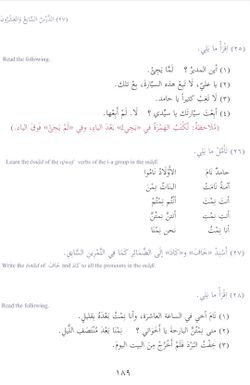 (٢٧) الدَّرْسُ السَّابِعُ وَالعِشْرُونَ
(٢٥) اِقْرَأْ ما يَلِي.
Read the following.
(١) أين المديرُ ؟ لَمَّا يَجِئْ.
(٢) يا عليّ، لا تَبِعْ هذه السيّارَةَ، بِعْ تلك.
(٣) لا تَغِبْ كثيراً يا حامد.
(٤) أبِعْتَ سيّارتَك يا سيّدي ؟ لا. لَمْ أَبِعْها.
(ملاحظة: تُكْتَبُ الهَمْزَةُ في «يَجِيءُ» بَعْدَ الياءِ، وفي «لَمْ يَجِئْ» فوق الياءِ.)
(٢٦) تَأَمَّلْ ما يَلِي.
Learn the isnād of the ajwaf verbs of the i-a group in the māḍī.
حامدٌ نَامَ الأَوْلَادُ نَامُوا
آمنةُ نَامَتْ البناتُ نِمْنَ
أنتَ نِمْتَ أنتُم نِمْتُمْ
أنتِ نِمْتِ أنتُنَّ نِمْتُنَّ
أنا نِمْتُ نحنُ نِمْنَا
(٢٧) أَسْنِدْ «خَافَ» و«كَادَ» إلى الضَّمائِرِ كَمَا فِي التَّمْرِينِ السَّابِقِ.
Write the isnād of خَافَ and كَادَ to all the pronouns in the māḍī.
(٢٨) اِقْرَأْ ما يَلِي.
Read the following.
(١) نَامَ أَخي في الساعة العاشرة، وأنا نِمْتُ بَعْدَهُ بقليلٍ.
(٢) متى نِمْتُنَّ البارحةَ يا أَخَواتي ؟ نِمْنا بَعْدَ مُنْتَصَفِ اللَّيلِ.
(٣) خِفْتُ البَرْدَ فَلَمْ أَخْرُجْ مِنَ البيت اليومَ.
١٨٩